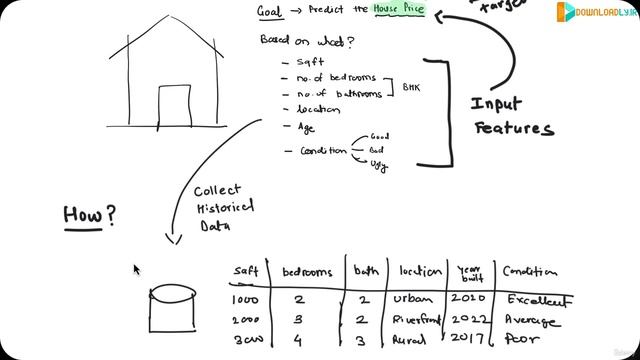 Target
DOWNLOADLY.IR
Goal → Predict the House Price
Based on what?
- Sqft
- no. of bedrooms
- no. of bathrooms
BHK
- location
- Age
- Condition
Good
Bad
Ugly
Input
Features
Collect
Historical
Data
How?
Sqft bedrooms bath location Year built Condition
1000 2 2 Urban 2020 Excellent
2000 3 2 Riverfront 2022 Average
3000 4 3 Rural 2017 Poor